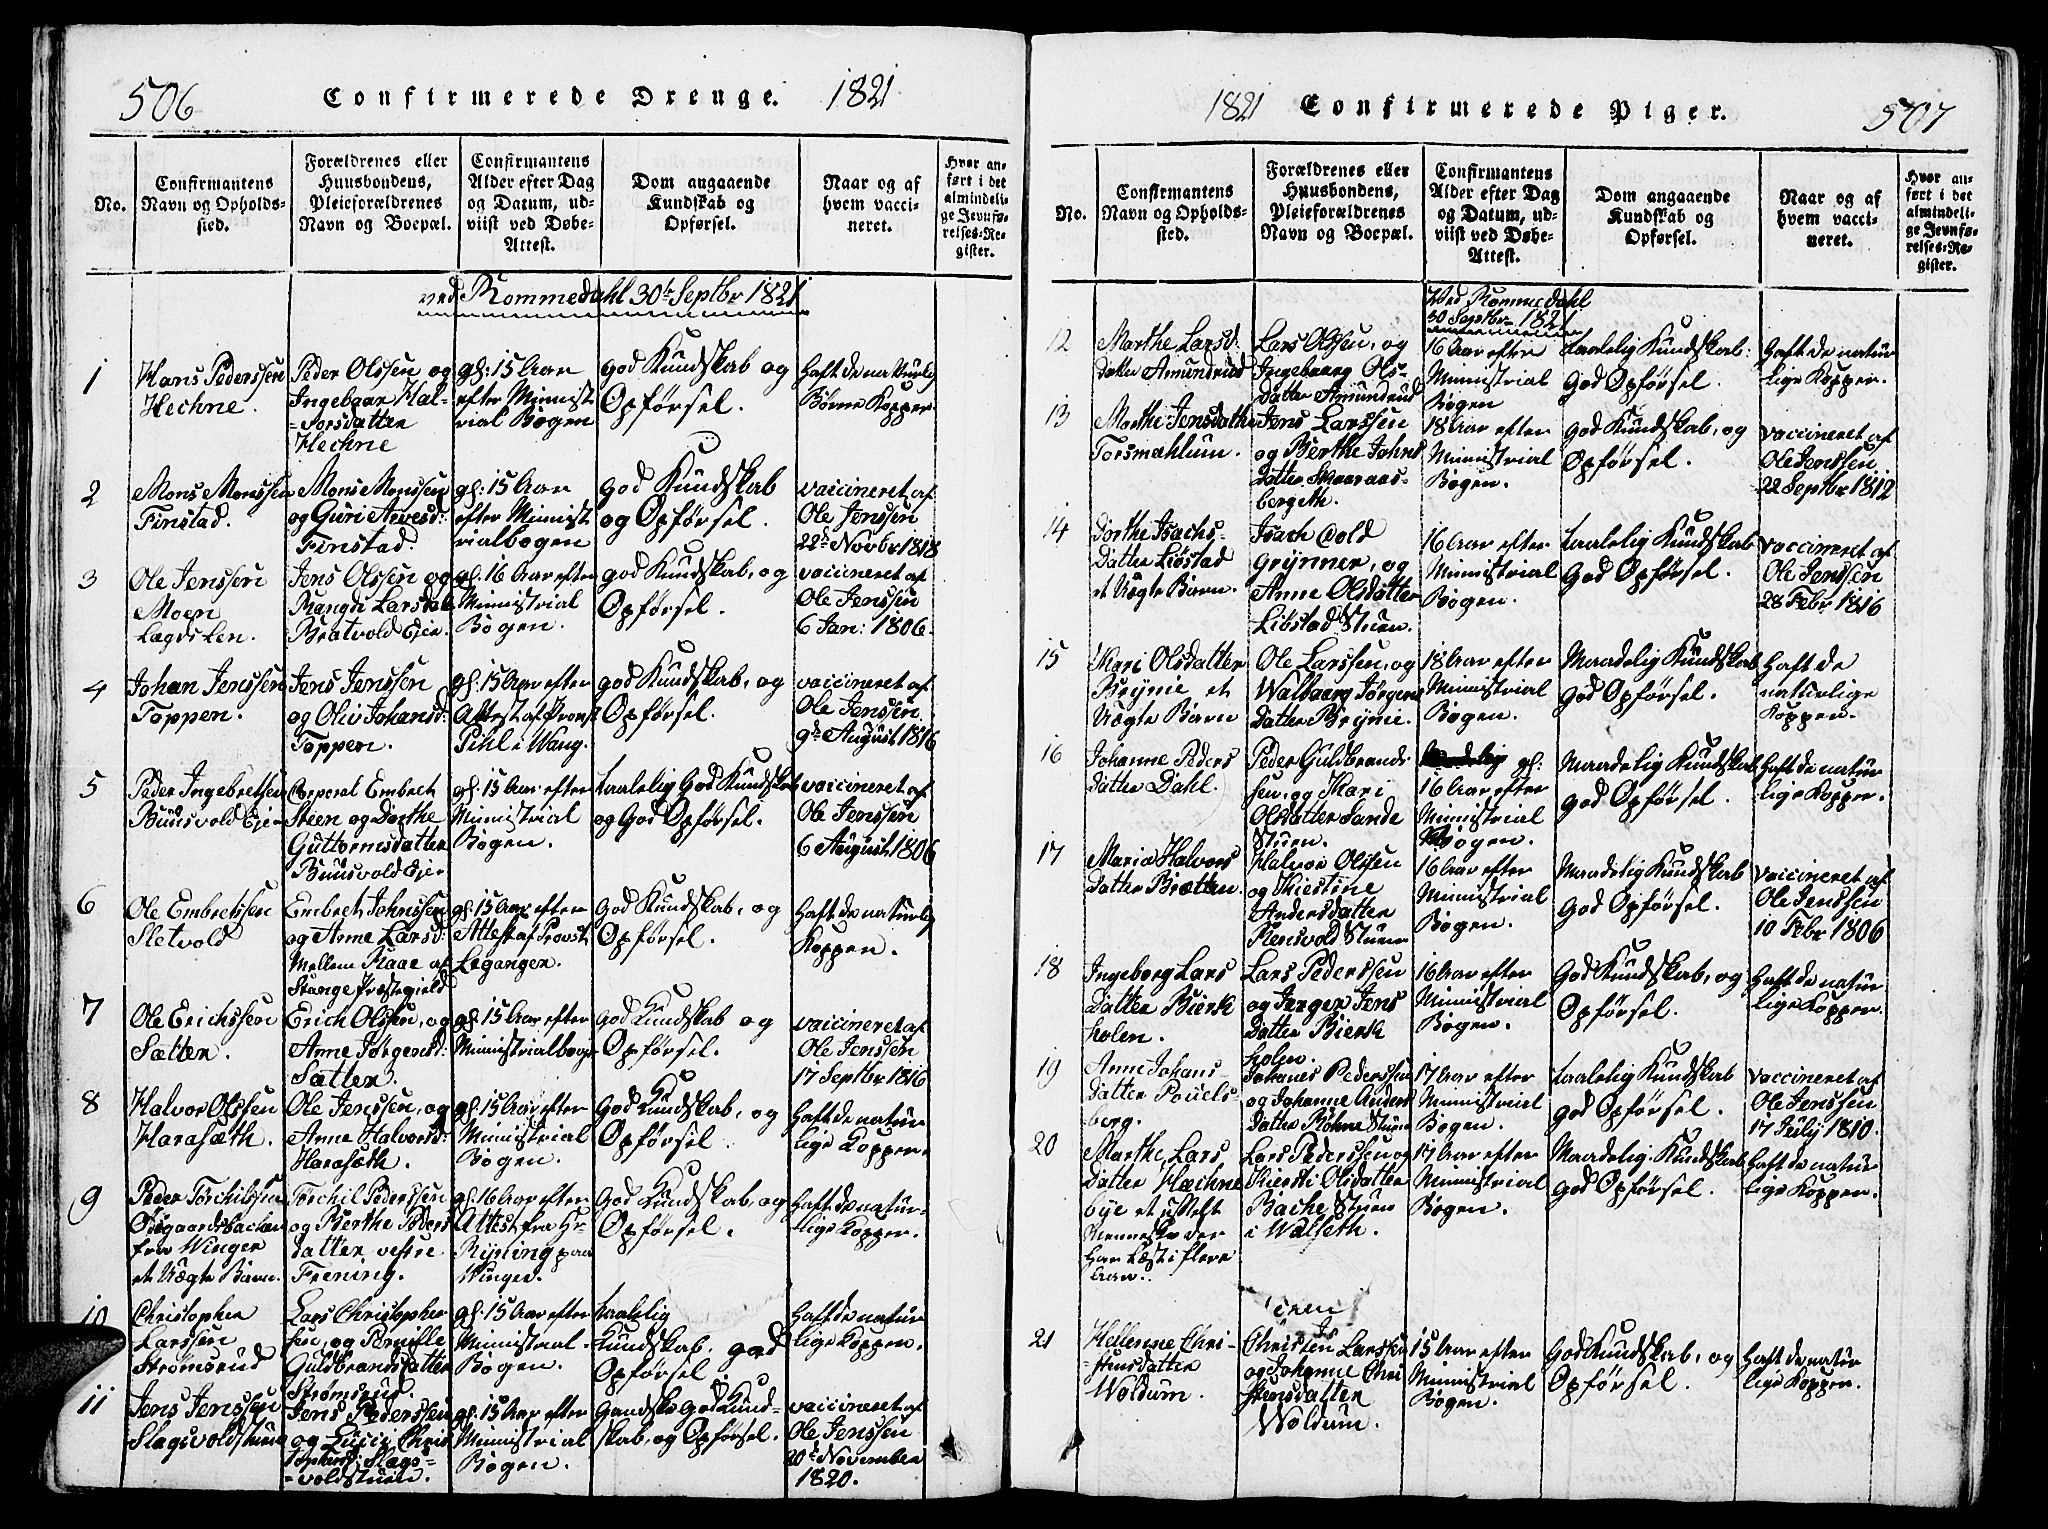 506
Confirmerede Drenge. 1821.
No.
Confirmantens
Navn og Opholds-
sted.
Forældrenes eller
Huusbondens,
Pleieforældrenes
Navn og Boepæl.
Confirmantens
Alder efter Dag
og Datum, ud-
viist ved Døbe-
Attest.
Dom angaaende
Kundskab og
Opførsel.
Naar og af
hvem vacci-
neret.
Hvor an-
ført i det
almindeli-
ge Jevnfø-
relses-Re-
gister.
ved Rommedahl 30te Septbr 1821
1
Hans Pederssen
Hechne.
Peder Olssen og
Ingebaar Hal-
-vorsdatter
Hechne
gl: 15 Aar
efter Minist
rial Bogen
god Kundskab og
Opførsel.
haft de naturlig
Børne Kopper.
2
Mons Monssen
Finstad.
Mons Monssen
og Guri Arnesd:
Finstad.
gl: 15 Aar
efter Minist
rialbogen
god Kundskab
og Opførsel.
vaccineret af
Ole Jenssen
22de Novbr 1818
3
Ole Jenssen
Moen
Lægdslen.
Jens Olssen og
Rangdi Larsdat
Bratvold Eje.
gl: 16 Aar efter
Ministrial
Bogen.
god Kundskab, og
Opførsel.
vaccineret af
Ole Jenssen
6 Jan: 1806.
4
Johan Jenssen
Toppen.
Jens Jenssen
og Oliv Johansd:
Toppen.
gl: 15 Aar efter
Attest af Provst
Pihl i Wang.
god Kundskab, og
Opførsel.
vaccineret af
Ole Jenssen
9de August 1816
5
Peder Ingebretsen
Buusvold Ejer
Corporal Embret
Steen og Dorthe
Guttormsdatter
Buusvold Ejer
gl: 15 Aar efter
Ministrial
Bogen.
taalelig God Kundskab
og God Opførsel.
vaccineret af
Ole Jenssen
6 August 1806
6
Ole Embretssen
Sletvold
Embret Johnssen
og Anne Larsd:
Mellem Kaae af
Stange Præstegield
gl: 15 Aar efter
Attest af Provst
Leganger.
God Kundskab, og
Opførsel.
haft de naturlig
Kopper.
7
Ole Erichssen
Sætter.
Erich Olssen, og
Anne Jørgensd:
Sætter.
gl: 15 Aar efter
Ministrialboge
God Kundskab og
Opførsel.
vaccineret af
Ole Jenssen
17 Septbr 1816
8
Halvor Olssen
Harasæth.
Ole Jenssen, og
Anne Halvorsd:
Harasæth.
gl: 15 Aar efter
Ministrial
Bogen.
God Kundskab, og
Opførsel
haft de natur
lige Kopper.
9
Peder Torchilssen
Øvregaardsbacken
fra Winger
et Uægte Barn.
Torchil Pederssen
og Berthe Peders
datter vestre
Frening.
gl: 16 Aar efter
Attest fra Hr
Ryning paa
Winger.
God Kundskab, og
Opførsel.
haft de natur-
lige Kopper.
10
Christopher
Larssen
Strømsrud
Lars Christopher
sen, og Pernille
Guldbrandsdatter
Strømsrud.
gl: 15 Aar efter
Ministrial
Bogen.
taalelig
Kundskab, god
Opførsel
haft de natur
lige Kopper.
11
Jens Jenssen
Slagsvoldstuen
Jens Pederssen
og Lucci Chris
tophersd: Slags-
-voldstuen.
gl: 15 Aar efter
Ministrial
Bogen.
Gandske god Kund-
skab, og Opførsel.
vaccineret af
Ole Jenssen
20de November
1820.
1821 Confirmerede Piger.
507
No.
Confirmantens
Navn og Opholds-
sted.
Forældrenes eller
Huusbondens,
Pleieforældrenes
Navn og Boepæl.
Confirmantens
Alder efter Dag
og Datum, ud-
viist ved Døbe-
Attest.
Dom angaaende
Kundskab og
Opførsel.
Naar og af
hvem vacci-
neret.
Hvor an-
ført i det
almindeli-
ge Jevnfø-
relses-Re-
gister.
Wed Rommedahl
30 Septbr 1821
12
Marthe Larsd:
datter Amundrud
Lars Olssen, og
Ingebaarg Ols-
datter Amundrud
16 Aar efter
Ministrial
Bogen
taalelig Kundskab:
God Opførsel.
haft de natur
lige Kopper.
13
Marthe Jensdatter
Torsmæhlum.
Jens Larssen
og Berthe Johns
datter Skaaraas-
bergeth.
18 Aar efter
Ministrial
Bogen.
God Kundskab, og
Opførsel.
vaccineret af
Ole Jenssen
22 Septbr 1812
14
Dorthe Isachs-
datter Liøstad
et Uægte Barn.
Isach Cold
Grynner, og
Anne Olsdatter
Liøstad Stuen.
16 Aar efter
Ministrial
Bogen.
taalelig Kundskab
God Opførsel.
vaccineret af
Ole Jenssen
28 Febr 1816
15
Kari Olsdatter
Brynie et
Uægte Barn
Ole Larssen, og
Walbaarg Jørgens
datter Brynie.
18 Aar efter
Ministrial
Bogen.
Maadelig Kundskab
god Opførsel.
haft de
naturlige
Kopper.
16
Johanne Peders
datter Dahl.
Peder Guldbrands
sen, og Kari
Olsdatter Sande
Stuen.
gl:
16 Aar efter
Ministrial
Bogen.
Maadelig Kundskab
god Opførsel.
haft de natur
lige Kopper.
17
Maria Halvors
datter Brætten.
Halvor Olssen
og Kiestine
Andersdatter
Rensvold Stuen
16 Aar efter
Ministrial
Bogen.
Maadelig Kundskab
God Opførsel.
vaccineret af
Ole Jenssen
10 Febr 1806
18
Ingeborg Lars
datter Bierk
holen.
Lars Pederssen
og Jørgen Jens
datter Bierk
holen.
16 Aar efter
Ministrial
Bogen.
God Kundskab, og
Opførsel.
haft de natur
lige Kopper.
19
Anne Johans-
datter Pouels
berg.
Johanes Pederssen
og Johanne Anders
datter Røhne Stuen
17 Aar efter
Ministrial
Bogen.
taalelig Kundskab
god Opførsel.
vaccineret af
Ole Jenssen
17 July 1810.
20
Marthe Lars
datter Hæchne
bye et usselt
Menneske der
har Læst i flere
Aar.
Lars Pederssen og
Kiersti Olsdatter
Bache Stuen
i Walseth.
17 Aar efter
Ministrial
Bogen.
Maadelig Kundskab
god Opførsel.
haft de natur
lige Kopper.
21
Hellenne Chri-
-stensdatter
Woldum.
Christen Larssen
og Johanne Chri
stensdatter
Woldum.
15 Aar efter
Ministrial
Bogen.
God Kundskab, og
Opførsel.
haft de natur
lige Kopper.